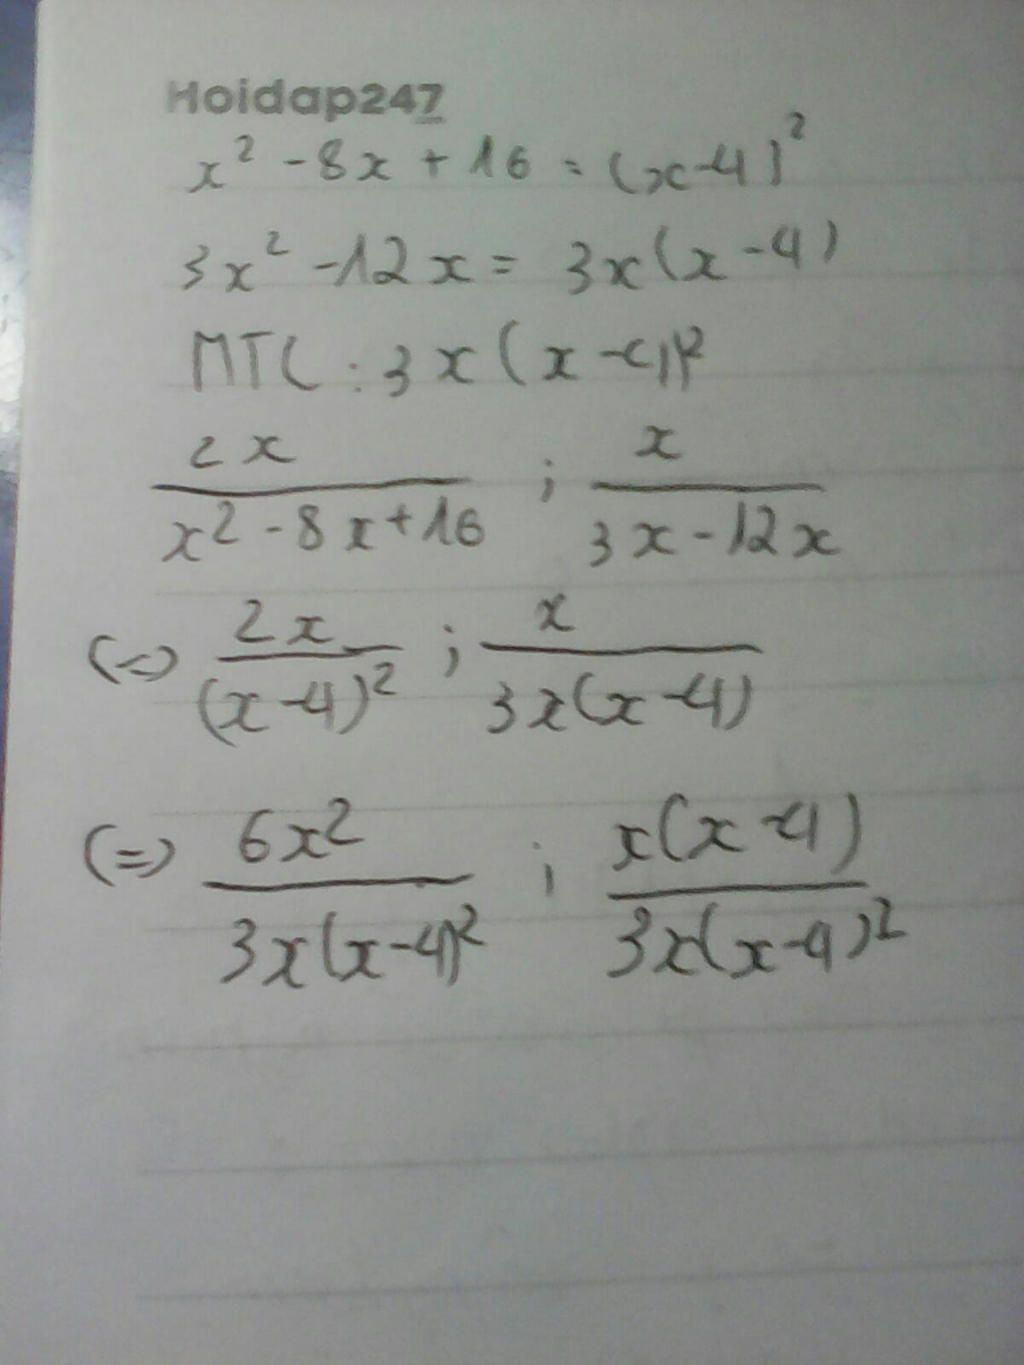 Hoidap247
x² - 8x + 16 = (x-4)²
3x² - 12x = 3x(x - 4)
MTC : 3x(x - 4)²
2x/(x² - 8x + 16) ; x/(3x - 12x)
(=) 2x/(x - 4)² ; x/(3x(x - 4))
(=) 6x²/(3x(x - 4)²) ; x(x - 4)/(3x(x - 4)²)